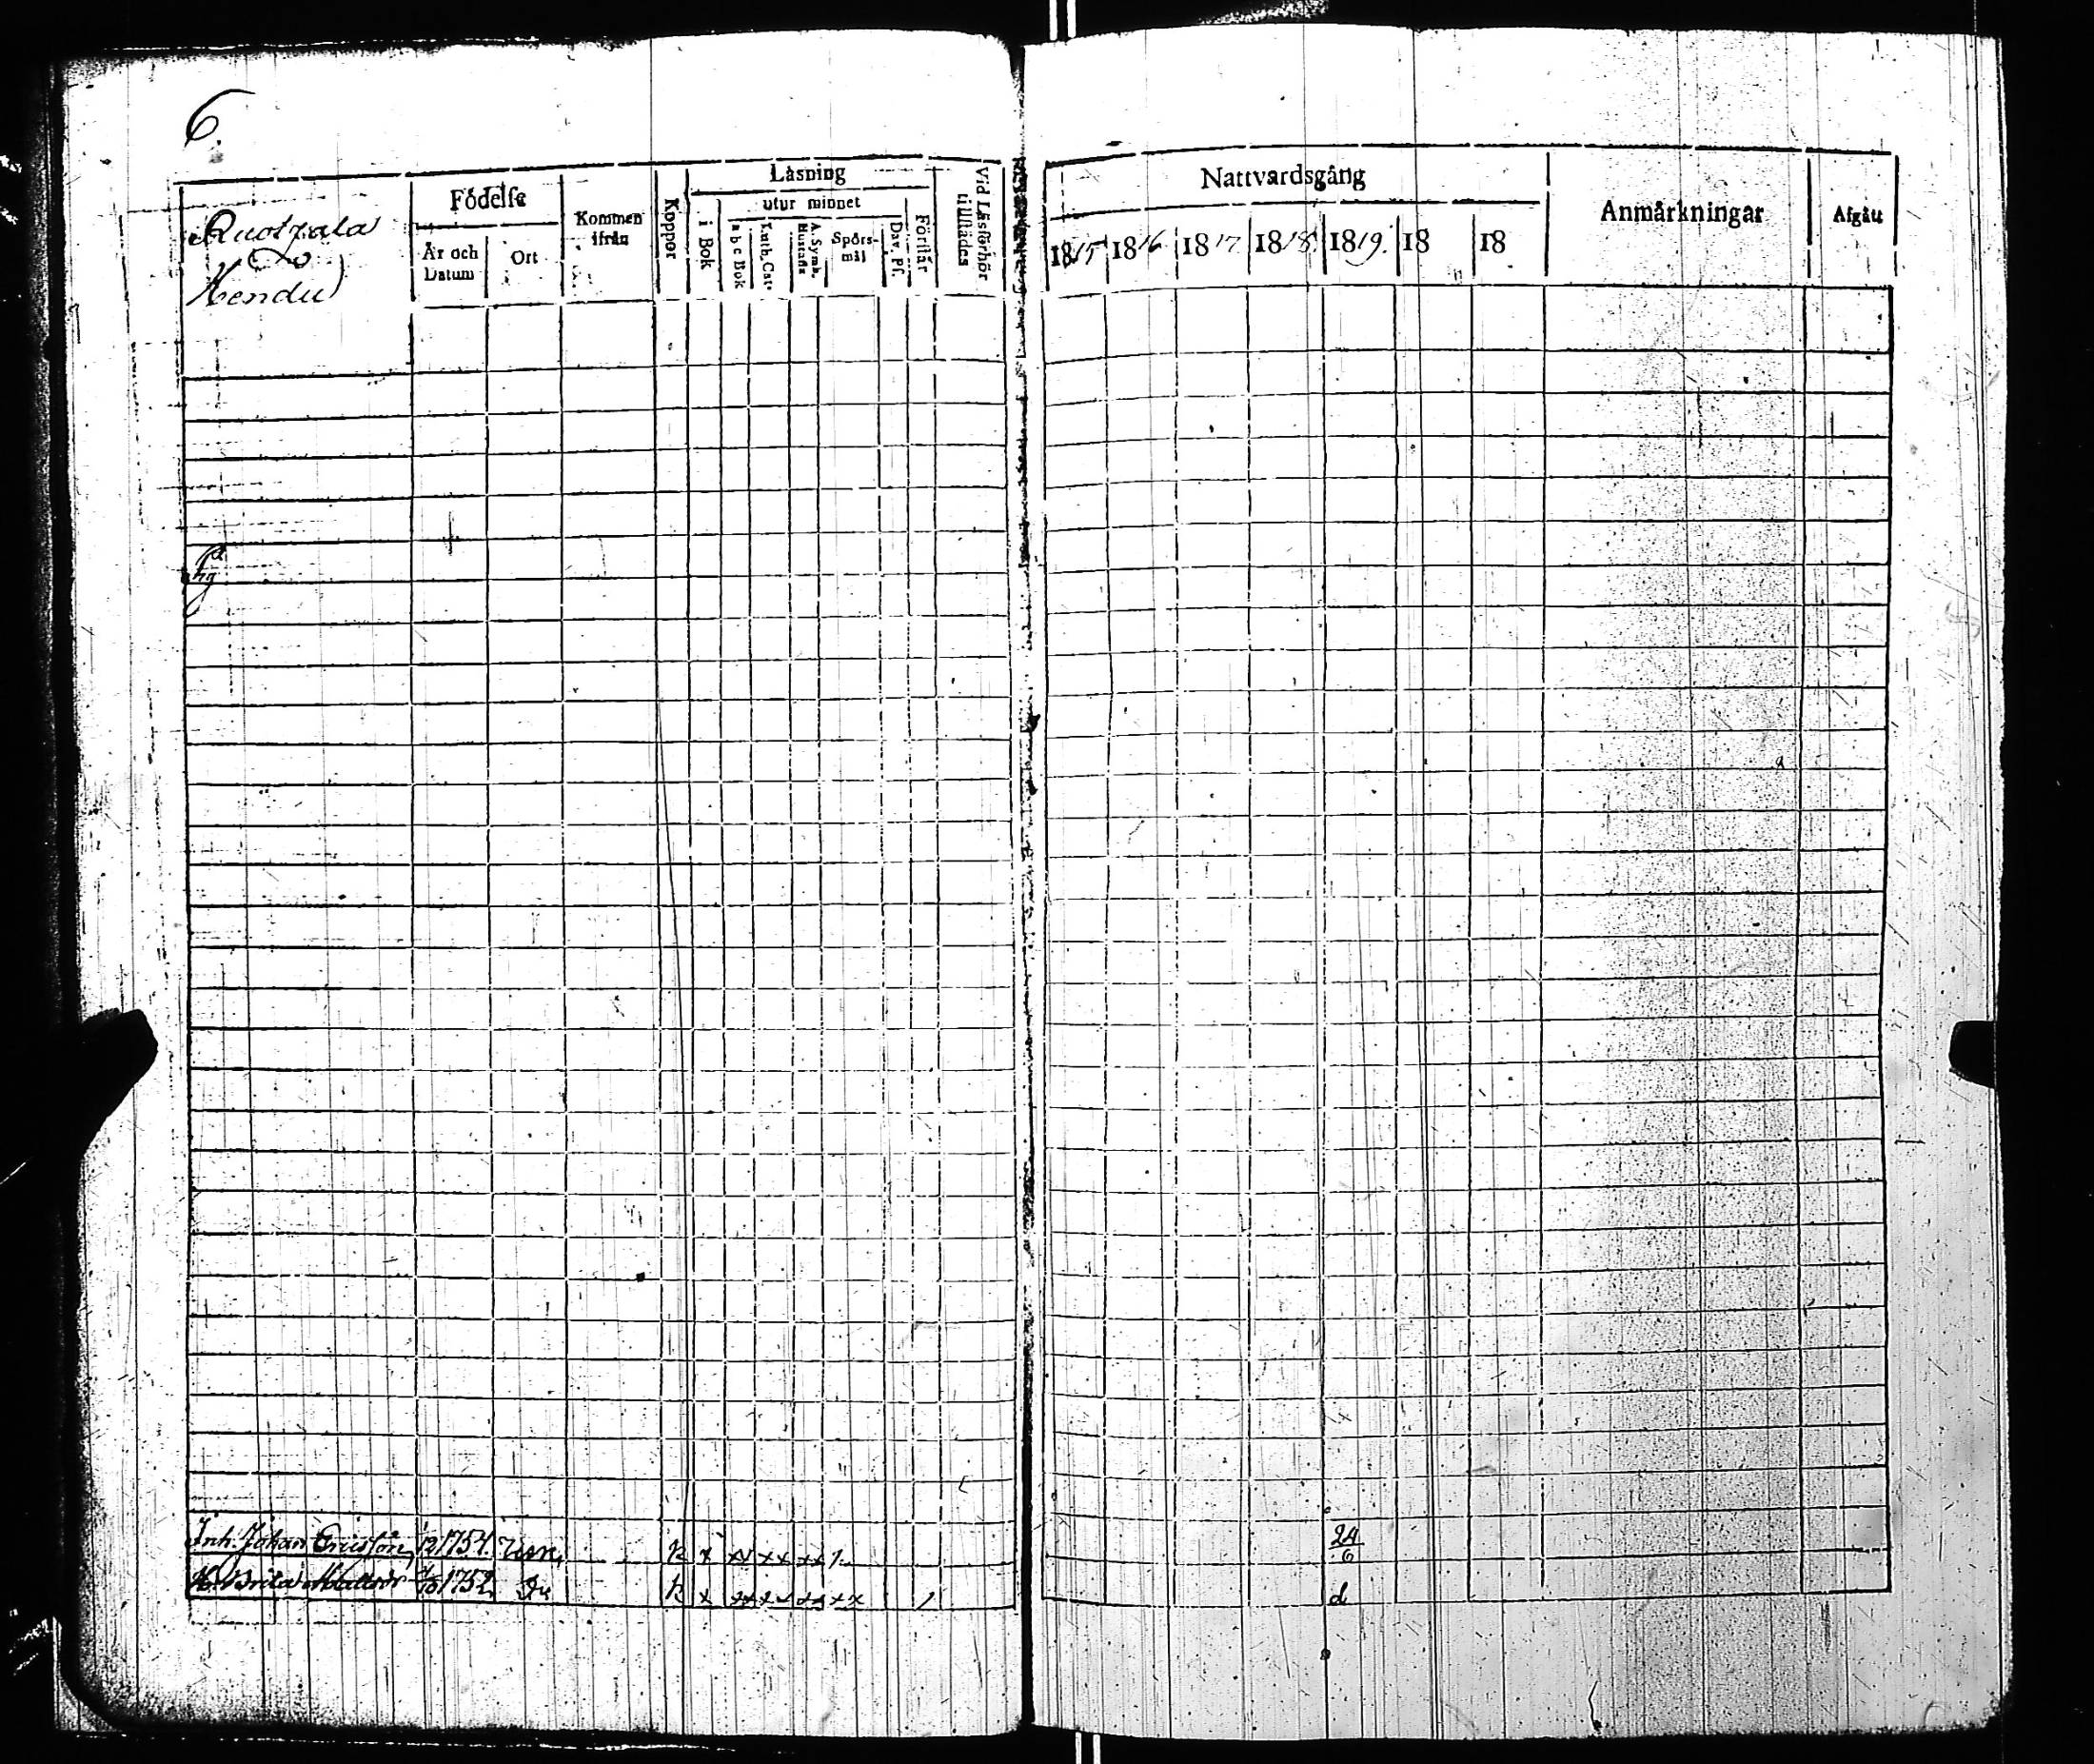 6.
Hendu
Födelse
År och Datum
Ort
Kommen ifrån
Koppor
Läsning
i Bok
utur minnet
a b c Bok
Luth. Cat.
A. Symb. Hustafla
Spörsmål
Dav. Ps.
Förstår
Vid Läsförhör tillstädes
Nattvardsgång
1815 1816 1817 1818 1819 18 18
Anmärkningar
Afgått
Inh. Johan Ericsson 1754 k x xx xx xx
24/6
H. Brita 1752 Do k x xx xx xx xx /
d